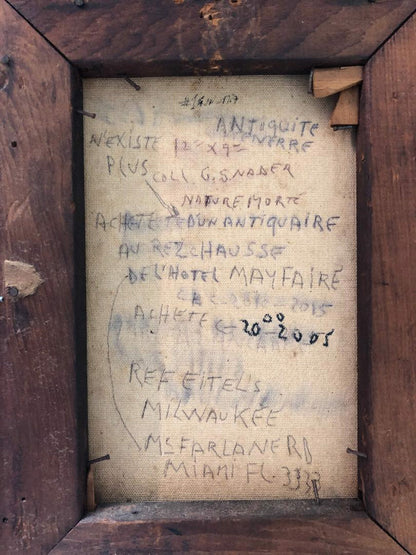 ANTIQUITE
N'EXISTE 12"x9" VERRE
PLUS COLL G. SNADER
NATURE MORTE
ACHETE D'UN ANTIQUAIRE
AU REZ CHAUSSE
DE L'HOTEL MAYFAIRE
ACHETE 2000 2005
REF EITEL'S
MILWAUKEE
McFARLANE RD
MIAMI FL. 3333